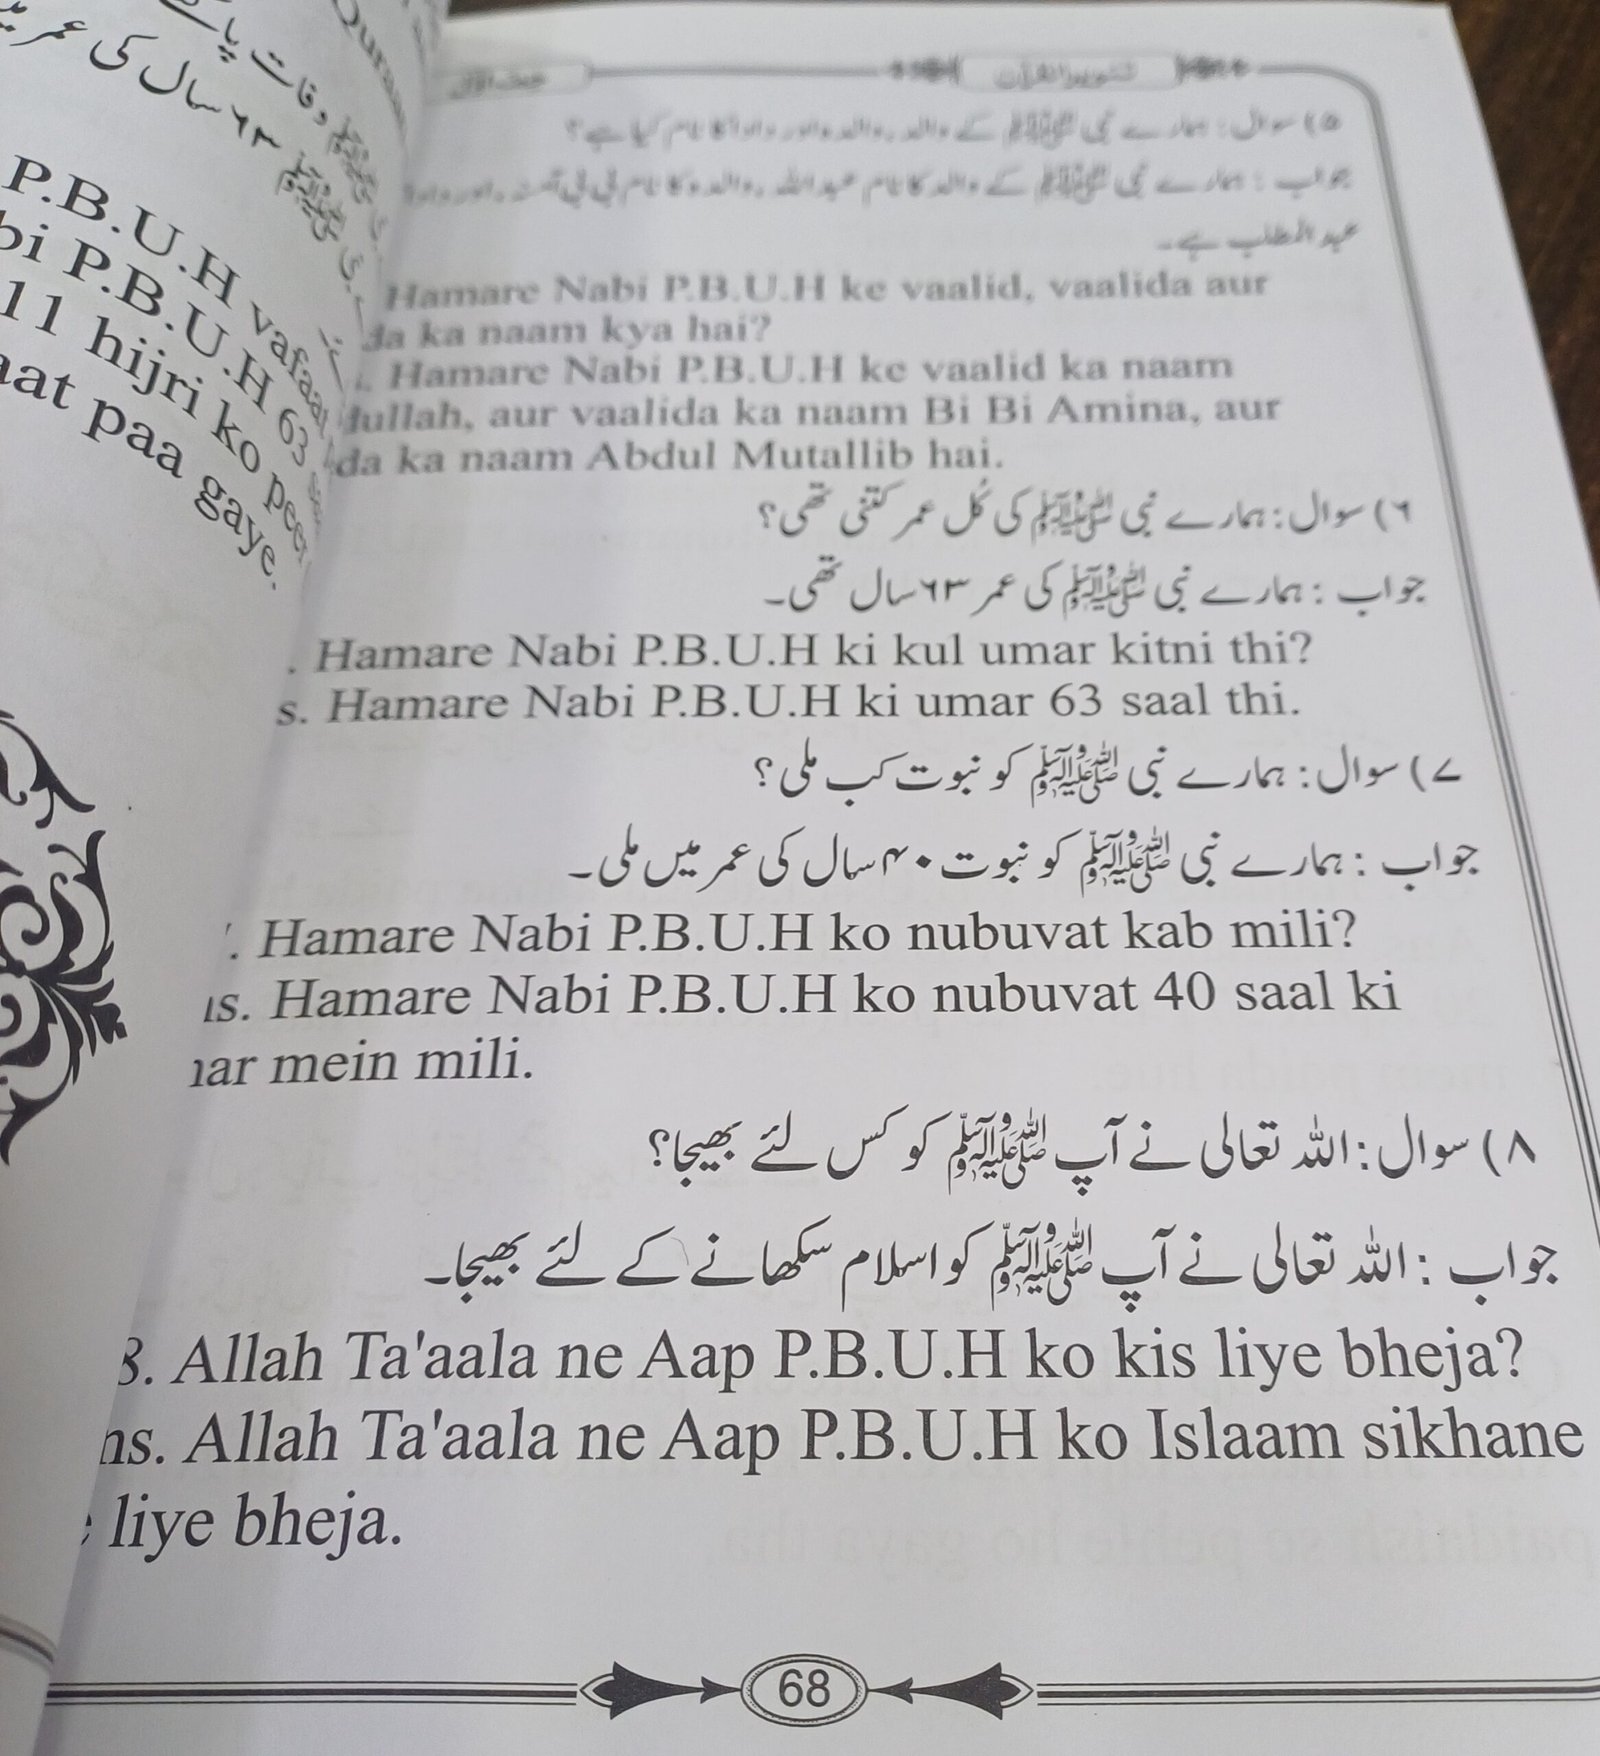 وفات پا
۶۳ سال کی عمر
P.B.U.H vafaat
bi P.B.U.H 63
11 hijri ko peer
aat paa gaye.
حصہ اوّل
تنویر القرآن
۵) سوال: ہمارے نبی ﷺ کے والد، والدہ اور دادا کا نام کیا ہے؟
جواب: ہمارے نبی ﷺ کے والد کا نام عبداللہ، والدہ کا نام بی بی آمنہ، اور دادا
عبدالمطلب ہے۔
Hamare Nabi P.B.U.H ke vaalid, vaalida aur
da ka naam kya hai?
Hamare Nabi P.B.U.H ke vaalid ka naam
dullah, aur vaalida ka naam Bi Bi Amina, aur
da ka naam Abdul Mutallib hai.
۶) سوال: ہمارے نبی ﷺ کی کُل عمر کتنی تھی؟
جواب: ہمارے نبی ﷺ کی عمر ۶۳ سال تھی۔
. Hamare Nabi P.B.U.H ki kul umar kitni thi?
s. Hamare Nabi P.B.U.H ki umar 63 saal thi.
۷) سوال: ہمارے نبی ﷺ کو نبوت کب ملی؟
جواب: ہمارے نبی ﷺ کو نبوت ۴۰ سال کی عمر میں ملی۔
. Hamare Nabi P.B.U.H ko nubuvat kab mili?
ns. Hamare Nabi P.B.U.H ko nubuvat 40 saal ki
nar mein mili.
۸) سوال: اللہ تعالی نے آپ ﷺ کو کس لئے بھیجا؟
جواب: اللہ تعالی نے آپ ﷺ کو اسلام سکھانے کے لئے بھیجا۔
8. Allah Ta'aala ne Aap P.B.U.H ko kis liye bheja?
ns. Allah Ta'aala ne Aap P.B.U.H ko Islaam sikhane
liye bheja.
68